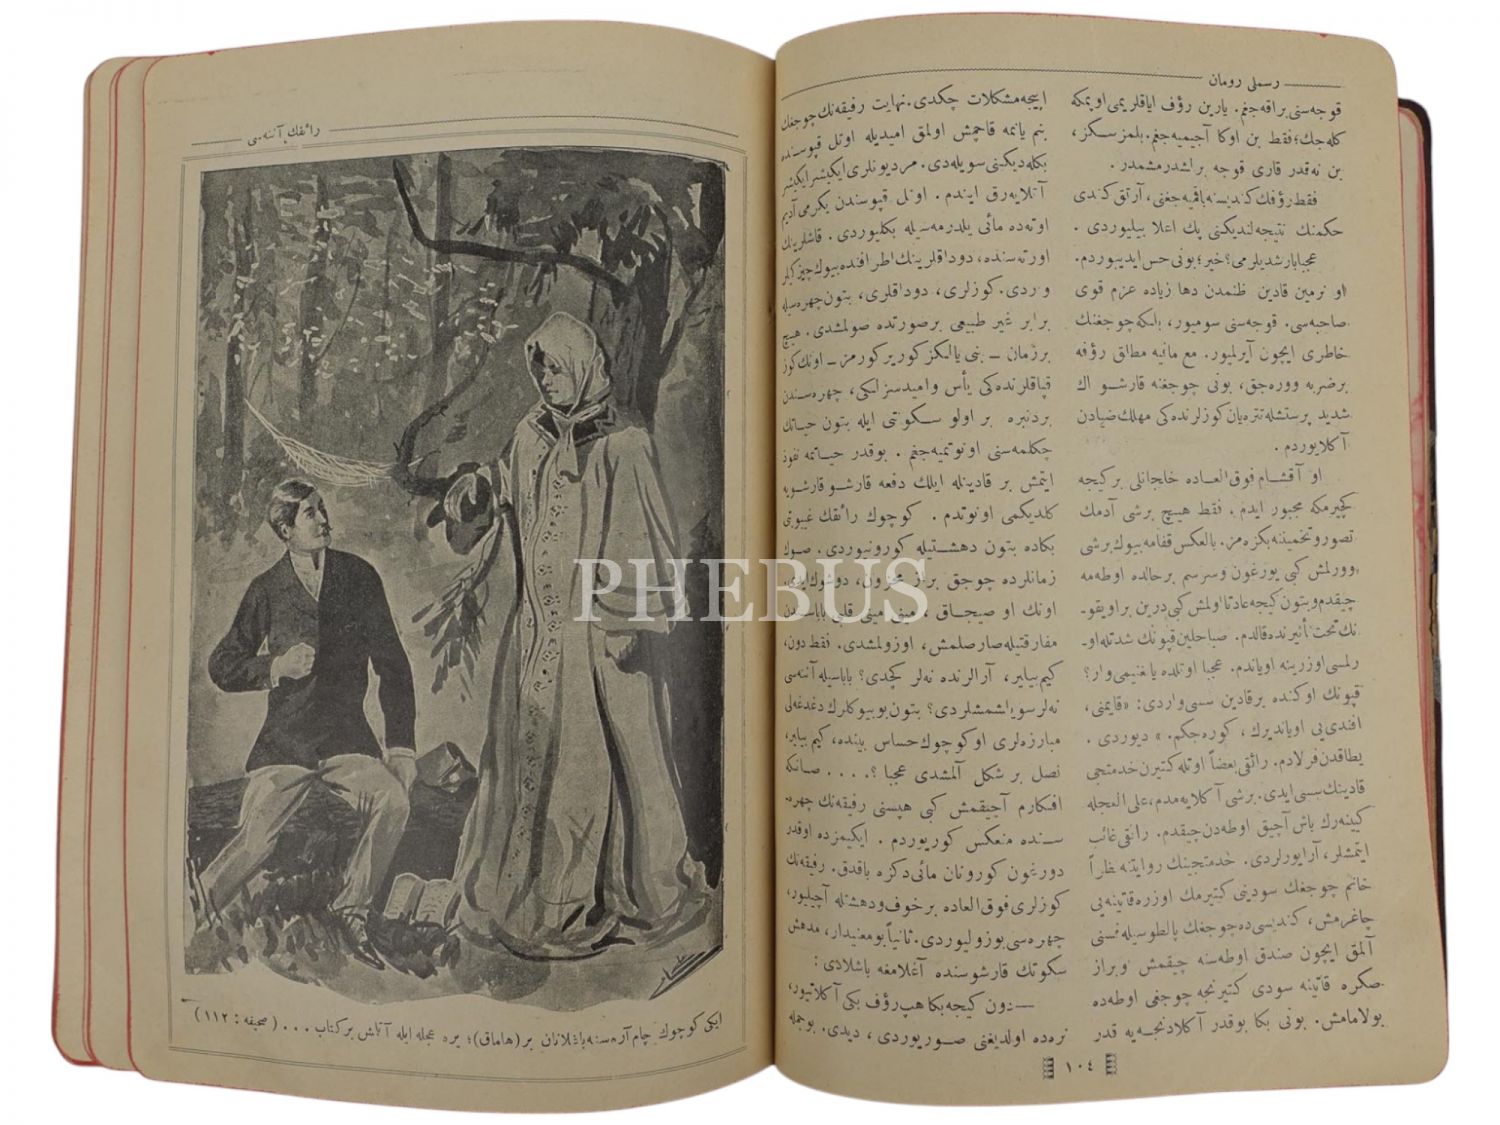 رسملی رومان
قوجه‌سنی براقه‌جغم. یارین رؤف ایاقلریمی اوپمكه
كله‌جك؛ فقط بن اوكا آجیمیه‌جغم. بلمز سكز،
بن نه‌قدر قاری قوجه براشدرمشمدر.
فقط رؤفك كندیسنه باقمیه‌جغنی، آرتق كندی
حكمنك نتیجه‌لندیكنی پك اعلا بیلیوردی.
عجبا بارشدیلرمی؟ خیر؛ بونی حس ایدییوردم.
او نرمین قادین ظنمدن دها زیاده عزم قوی
صاحبه‌سی. قوجه‌سنی سومیور، بلكه چوجغنك
خاطری ایچون آیرلمیور. مع مافیه مطلق رؤفه
برضربه ووره‌جق، بونی چوجغنه قارشو اك
شدید پرستشله تتره‌یان كوزلرنده‌كی مهلك ضیادن
آكلایوردم.
او آقشام فوق العاده خلجانلی بر كیجه
كچیرمكه مجبور ایدم. فقط هیچ برشی آدمك
تصور و تخمیننه بكزه‌مز. بالعكس قفامه بیوك برشی
وورلمش كبی یورغون وسرسم برحالده اوطه‌مه
چیقدم وبتون كیجه عادتا اولمش كبی درین بر اویقو-
نك تحت تأثیرنده قالدم. صباحلین قپونك شدتله او-
رلمسی اوزرینه اویاندم. عجبا اوتلده یانغینمی وار؟
قپونك اوكنده بر قادین سسی واردی: «قایمنی،
افندی‌یی اویاندیرك، كوره‌جكم.» دیوردی.
یطاقدن فرلادم. رائقی بعضاً اوتله كتیرن خدمتجی
قادینك سسی ایدی. برشی آكلایه‌مدم، علی العجله
كیینه‌رك باش آچیق اوطه‌دن چیقدم. رائقی غائب
ایتمشلر، آرایورلردی. خدمتجینك روایتنه نظراً
خانم چوجغك سودینی كتیرمك اوزره قاتینه‌یی
چاغرمش، كندیسی‌ده چوجغك پالطوسیله فسنی
آلمق ایچون صندق اوطه‌سنه چیقمش وبراز
صكره قاتینه سودی كتیرنجه چوجغی اوطه‌ده
بولامامش. بونی بكا بوقدر آكلادنجه‌یه قدر
اییجه مشكلات چكدی. نهایت رفیقه‌نك چوجغك
بنم یانمه قاچمش اولمق امیدیله اوتل قپوسنده
بكله‌دیكنی سویله‌دی. مردیونلری ایكیشر ایكیشر
آتلایه‌رق ایندم. اوتل قپوسندن یكرمی آدیم
اوته‌ده مائی یلدرمه‌سیله بكلیوردی. قاشلرینك
اورته‌سنده، دوداقلرینك اطرافنده بیوك چیزكیلر
واردی. كوزلری، دوداقلری، بتون چهره‌سیله
برابر غیر طبیعی برصورتده صولمشدی. هیچ
برزمان — بنی یالكز كوریر كورمز — اونك كوز
قپاقلرنده‌كی یأس وامیدسزلكی، چهره‌سندن
بردنبره بر اولو سكونتی ایله بتون حیاتك
چكلمه‌سنی اونوتمیه‌جغم. بوقدر حیاتمه نفوذ
ایتمش بر قادینله ایلك دفعه قارشو قارشویه
كلدیكمی اونوتدم. كوچوك رائقك غیبوبتی
بكاده بتون دهشتیله كورونیوردی. صوك
زمانلرده چوجق براز محزون، دوشونجه‌لی
اونك او صیجاق، مینی مینی قلبی باباسندن
مفارقتیله صارصلمش، اوزولمشدی. فقط دون،
كیم بیلیر، آرالرنده نه‌لر كچدی؟ باباسیله آننه‌سی
نه‌لر سویلشمشلردی؟ بتون بو بیوكلرك دغدغه‌لی
مبارزه‌لری او كوچوك حساس بیننده، كیم بیلیر،
نصل بر شكل آلمشدی عجبا؟.... صانكه
افكارم آچیقمش كبی هپسنی رفیقه‌نك چهره
سنده منعكس كوریوردم. ایكیمزده اوقدر
دورغون كورونان مائی دكزه باقدق. رفیقه‌نك
كوزلری فوق العاده برخوف ودهشتله آچیلیور،
چهره‌سی بوزولیوردی. ثانیاً بو معنیدار، مدهش
سكوتك قارشوسنده آغلامغه باشلادی:
— دون كیجه بكا هپ رؤف بكی آكلاتیور،
نره‌ده اولدیغنی صوریوردی، دیدی. بوجمله
١٠٤
رائقك آننه‌سی
ایكی كوچوك چام آره‌سنه باغلانان بر (هاماق)؛ یره عجله ایله آتلمش بر كتاب... (صحیفه: ١١٢)
PHEBUS